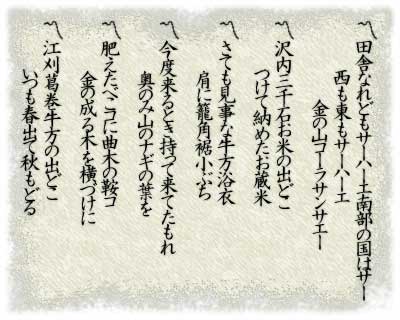 〽田舎なれどもサーハー土南部の国はサー
西も東もサーハーエ
金の山コーラサンサエー
〽沢内三千石お米の出どこ
つけて納めたお蔵米
〽さても見事な牛方浴衣
肩に籠角裾小ぶち
〽今度来るとき持って来てたもれ
奥のみ山のナギの葉を
〽肥えたべココに曲木の鞍コ
金の成る木を横づけに
〽江刈葛巻牛方の出どこ
いつも春出て秋もどる